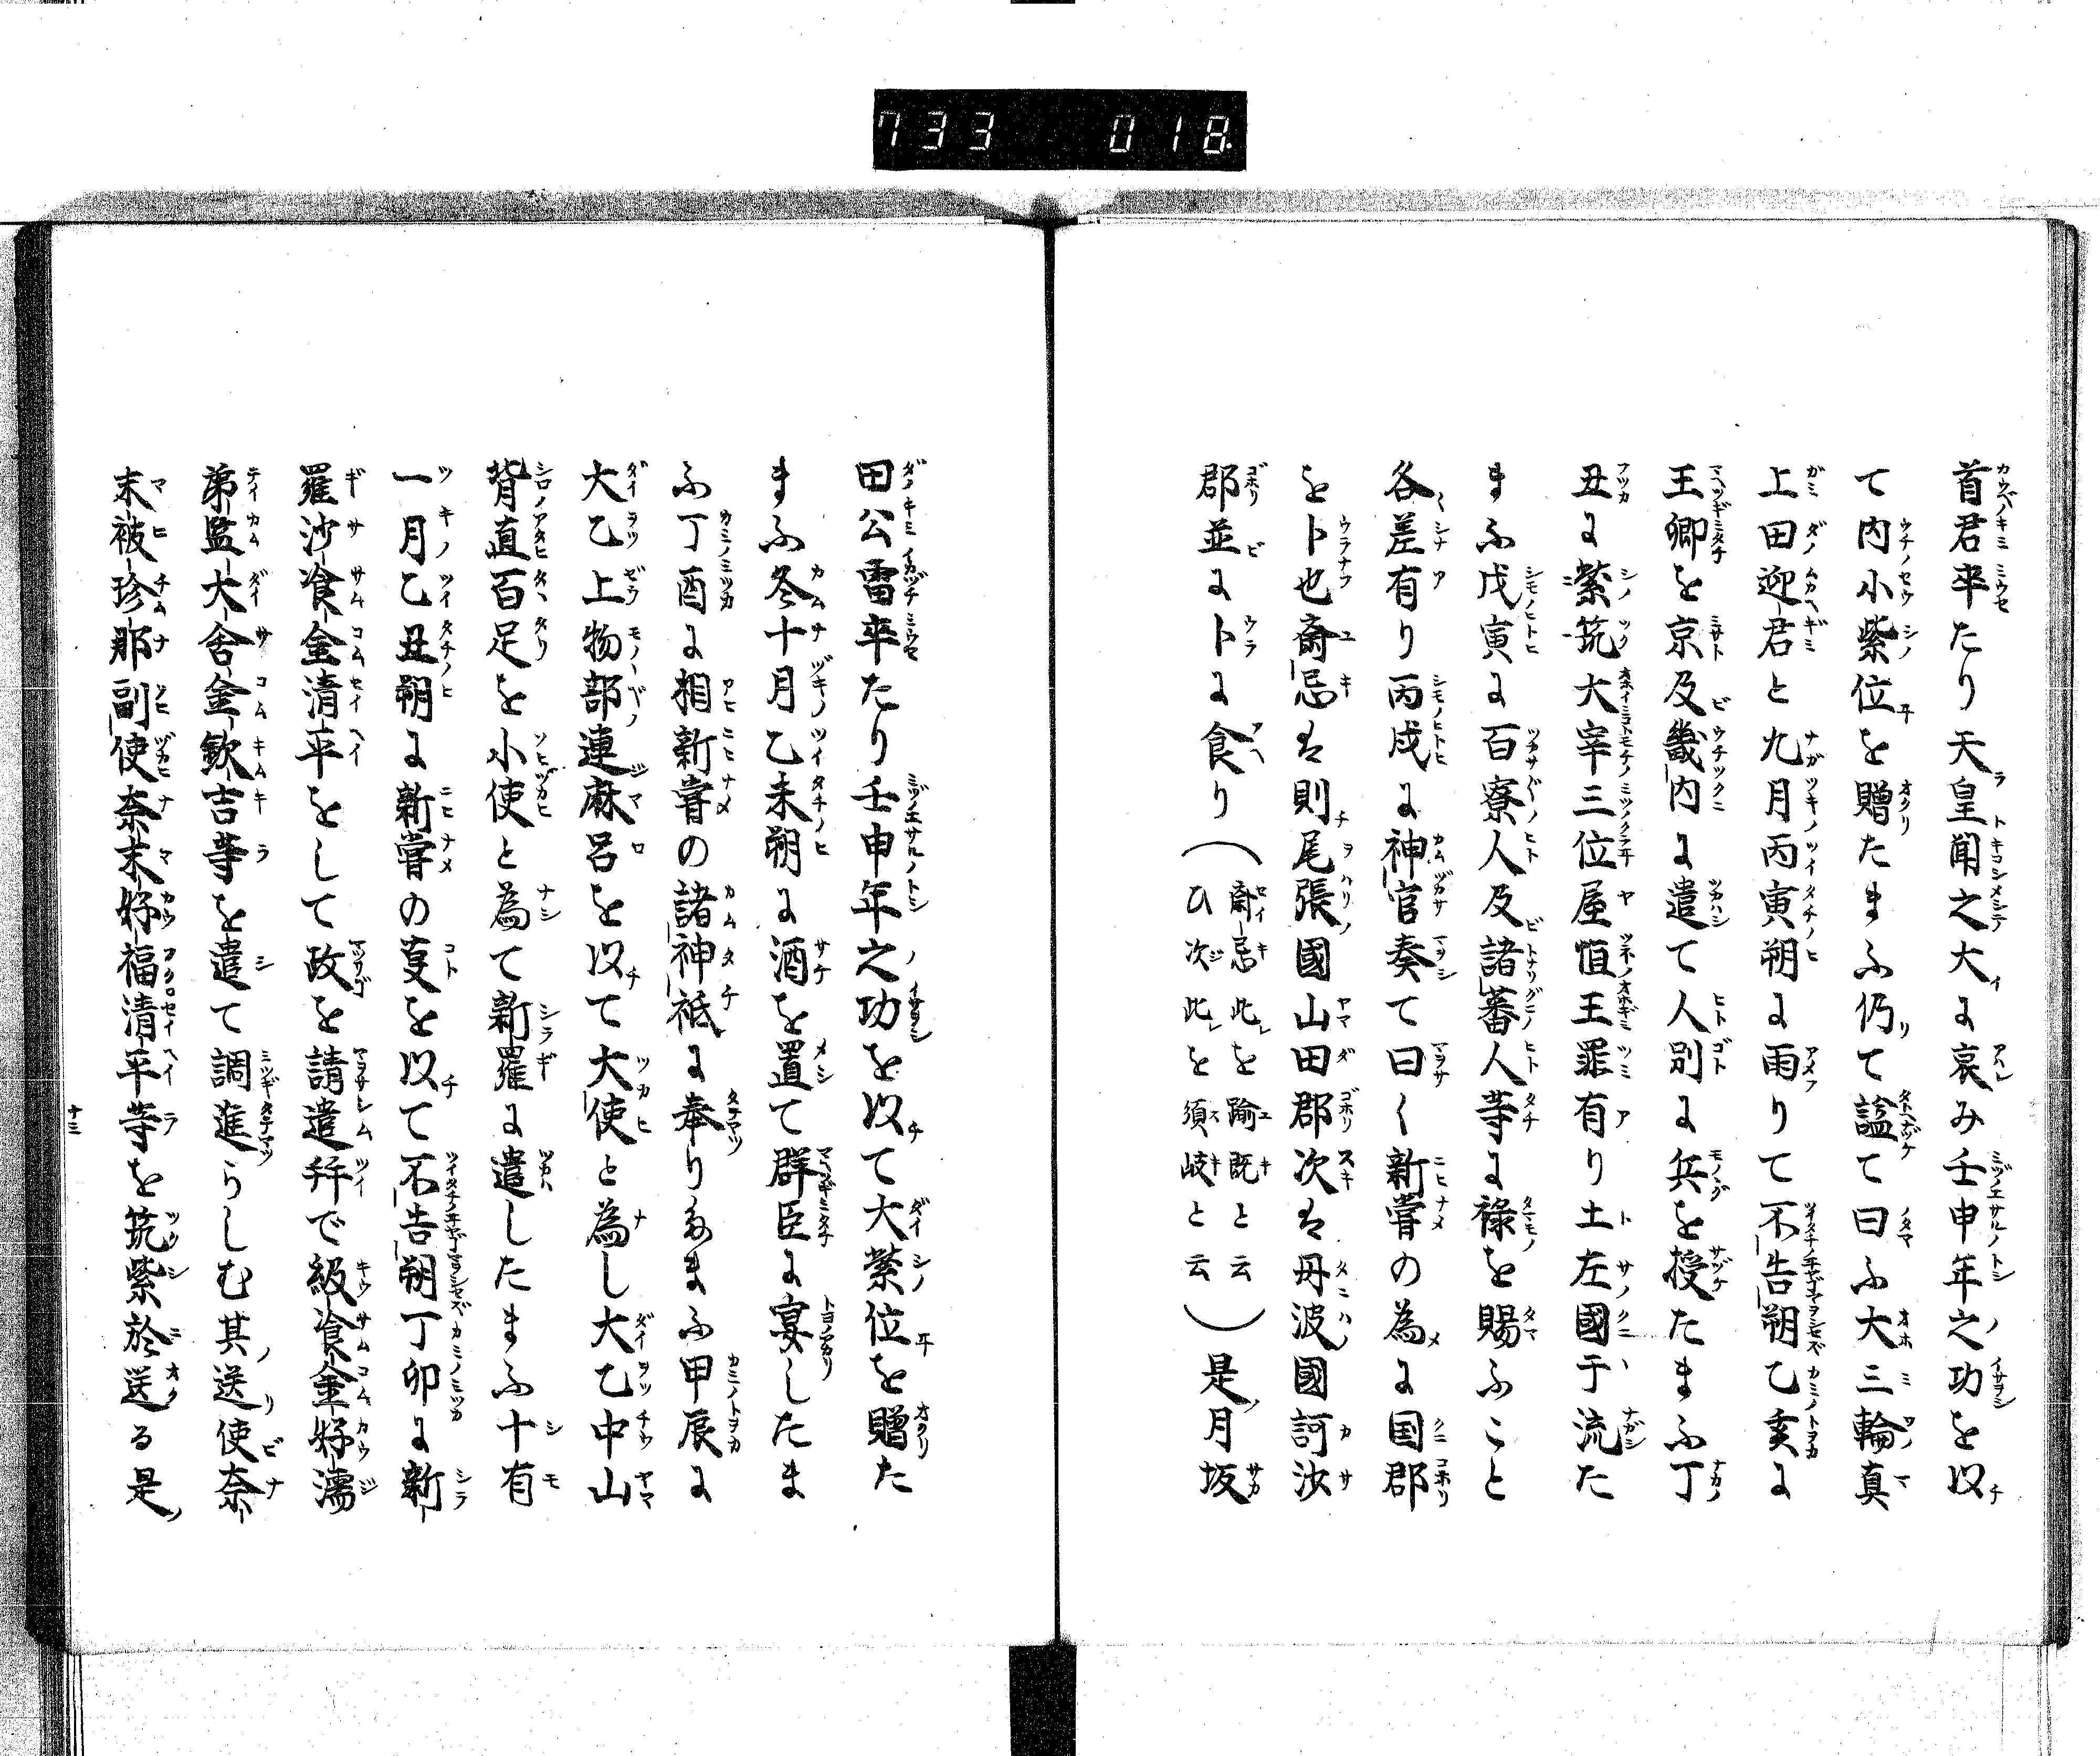 733 018
首君卒たり天皇聞之大に哀み壬申年之功を以
て内小紫位を贈たまふ仍て諡て曰ふ大三輪真
上田迎君と九月丙寅朔に雨りて不告朔乙亥に
王卿を京及畿内に遣て人別に兵を授たまふ丁
丑に紫筑大宰三位屋恒王罪有り土左國于流た
まふ戊寅に百寮人及諸蕃人等に祿を賜ふこと
各差有り丙戌に神官奏て曰く新嘗の為に国郡
を卜也斎忌は則尾張國山田郡次は丹波國訶沙
郡並に卜に食り（斎忌此を踰既と云
ひ次此を須岐と云）是月坂
田公雷卒たり壬申年之功を以て大紫位を贈た
まふ冬十月乙未朔に酒を置て群臣に宴したま
ふ丁酉に相新嘗の諸神祇に奉りたまふ甲辰に
大乙上物部連麻呂を以て大使と為し大乙中山
背直百足を小使と為て新羅に遣したまふ十有
一月乙丑朔に新嘗の事を以て不告朔丁卯に新
羅沙飡金清平をして政を請遣幷で級飡金好濡
弟監大舍金欽吉等を遣て調進らしむ其送使奈
末被珍那副使奈末好福清平等を筑紫於送る是
十三